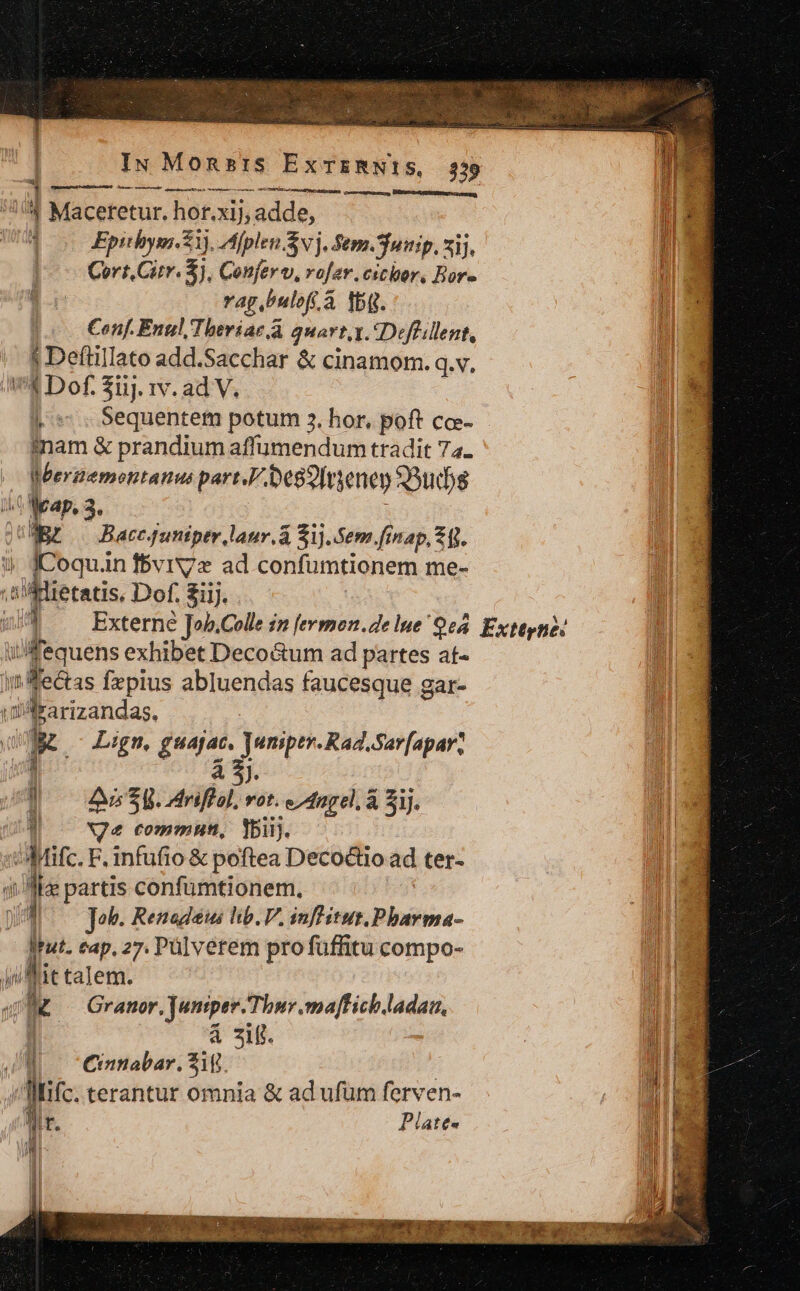 IN MORBIS EXTERNIS, 339
Maceretur. hor. xij, adde,
Epithym. ℥ij. Asplen. ℥vj. Sem. Junip. ʒij,
Cort. Citr. ℥j, Conserv. rosar. cichor, Bor-
rag, bulossi. ā ℔ß.
Conf. Enul, Theriac. ā quart. j. Destillent,
Destillato add. Sacchar & cinamom. q.v.
Dos. ℥iij. IV. ad V.
Sequentem potum 3. hor, post cœ-
nam & prandium assumendum tradit Ta-
bernæmontanus part. V. Des Artzeney Buchs
cap. 3.
℞ Bacc. juniper, laur. ā ℥ij. Sem. sinap, ℥ß.
Coqu. in ℔vi ▽æ ad consumtionem me-
dietatis, Dos. ℥iij.
Externè Joh. Colle in sermon. de lue Vea Externè.
sequens exhibet Decoctum ad partes af-
fectas sæpius abluendas faucesque gar-
garizandas,
℞ Lign, guajac. Juniper. Rad. Sarsapar:
ā ℥j.
℥ß. Aristol, rot. Angel, ā ℥ij.
▽æ commun, ℔iij.
Misc. F. infusio & postea Decoctio ad ter-
tiæ partis consumtionem,
Joh. Renodæus lib. V. instituт. Pharma-
ceut. cap. 27. Pulverem pro suffitu compo-
nit talem.
℞ Granor. Juniper. Thur. mastich. ladan,
ā ʒiß.
Cinnabar. ℥iß.
Misc. terantur omnia & ad usum serven-
tur. Plate-